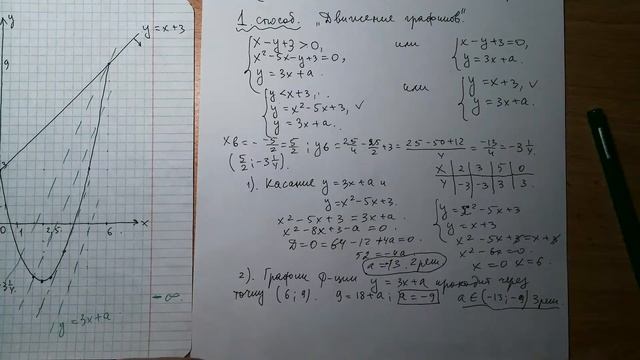 y
y = x+3
9
3
0
2
2,5
6
x
-3 1/4
y = 3x+a
-∞
1 способ. "Движение графиков".
{ x-y+3>0, x²-5x-y+3=0, y=3x+a или { x-y+3=0, y=3x+a.
{ y<x+3, y=x²-5x+3, ✓ y=3x+a. или { y=x+3, ✓ y=3x+a.
xв = -(-5)/2 = 5/2; yв = 25/4 - 25/2 + 3 = (25-50+12)/4 = -13/4 = -3 1/4
(5/2; -3 1/4).
x | 2 | 3 | 5 | 0
y | -3 | -3 | 3 | 3
1). Касание y=3x+a и
y=x²-5x+3.
x²-5x+3=3x+a.
x²-8x+3-a=0
D=0=64-12+4a=0.
52=-4a
a=-13. 2 реш.
{ y=x²-5x+3 y=x+3
x²-5x+3=x+3
x²-6x=0
x=0 x=6.
2). График ф-ции y=3x+a проходит через
точку (6; 9). 9=18+a; a=-9 a∈(-13;-9) 3 реш.